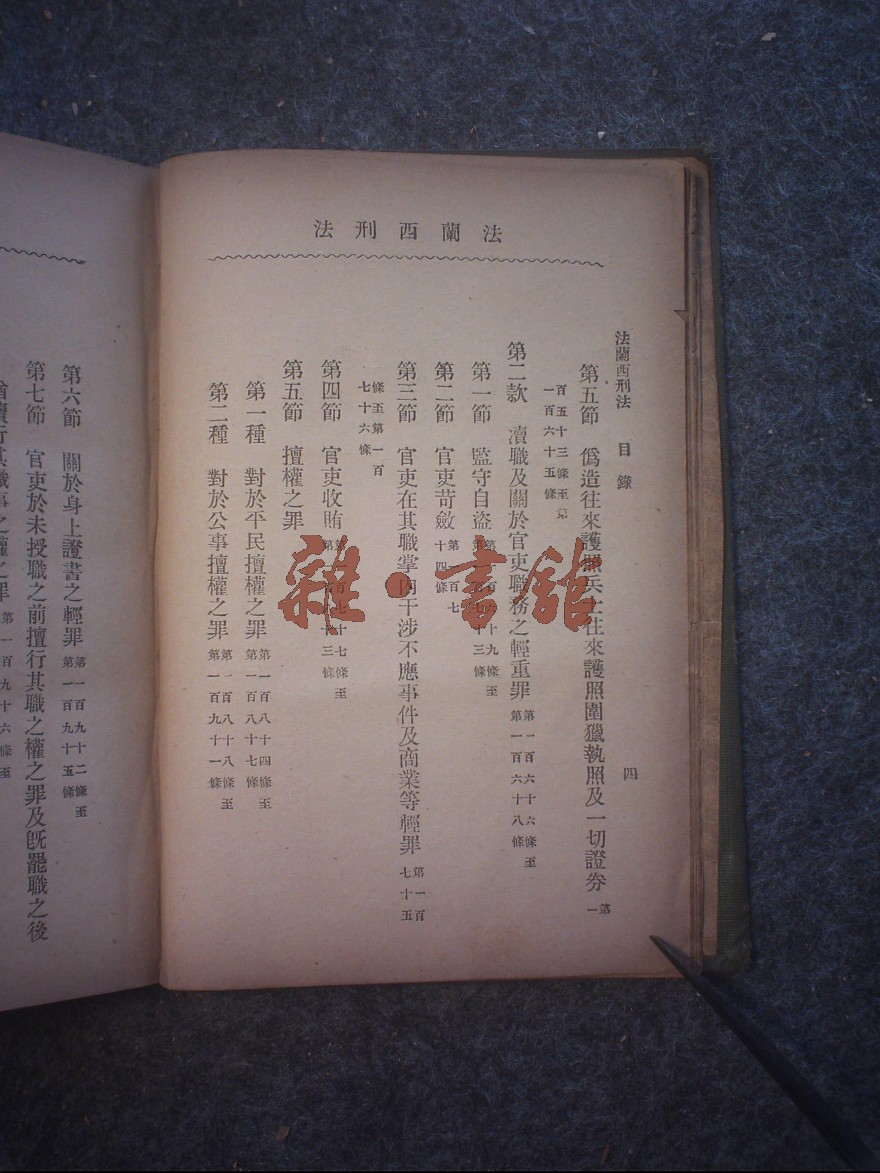 法蘭西刑法
法蘭西刑法 目錄 四
第五節 僞造往來護照兵士往來護照圍獵執照及一切證券 第一
百五十三條至第
一百六十五條
第二款 瀆職及關於官吏職務之輕重罪 第一百六十六條至
第一百六十八條
第一節 監守自盜 第一百六十九條至
第一百七十三條
第二節 官吏苛斂 第一百七
十四條
第三節 官吏在其職掌內干涉不應事件及商業等輕罪 第一百
七十五
條至第一百
七十六條
第四節 官吏收賄 第一百七十七條至
第一百八十三條
第五節 擅權之罪
第一種 對於平民擅權之罪 第一百八十四條至
第一百八十七條
第二種 對於公事擅權之罪 第一百八十八條至
第一百九十一條
第六節 關於身上證書之輕罪 第一百九十二條至
第一百九十五條
第七節 官吏於未授職之前擅行其職之權之罪及旣罷職之後
猶續行其職事之權之罪 第一百九十六條至
雜·書館